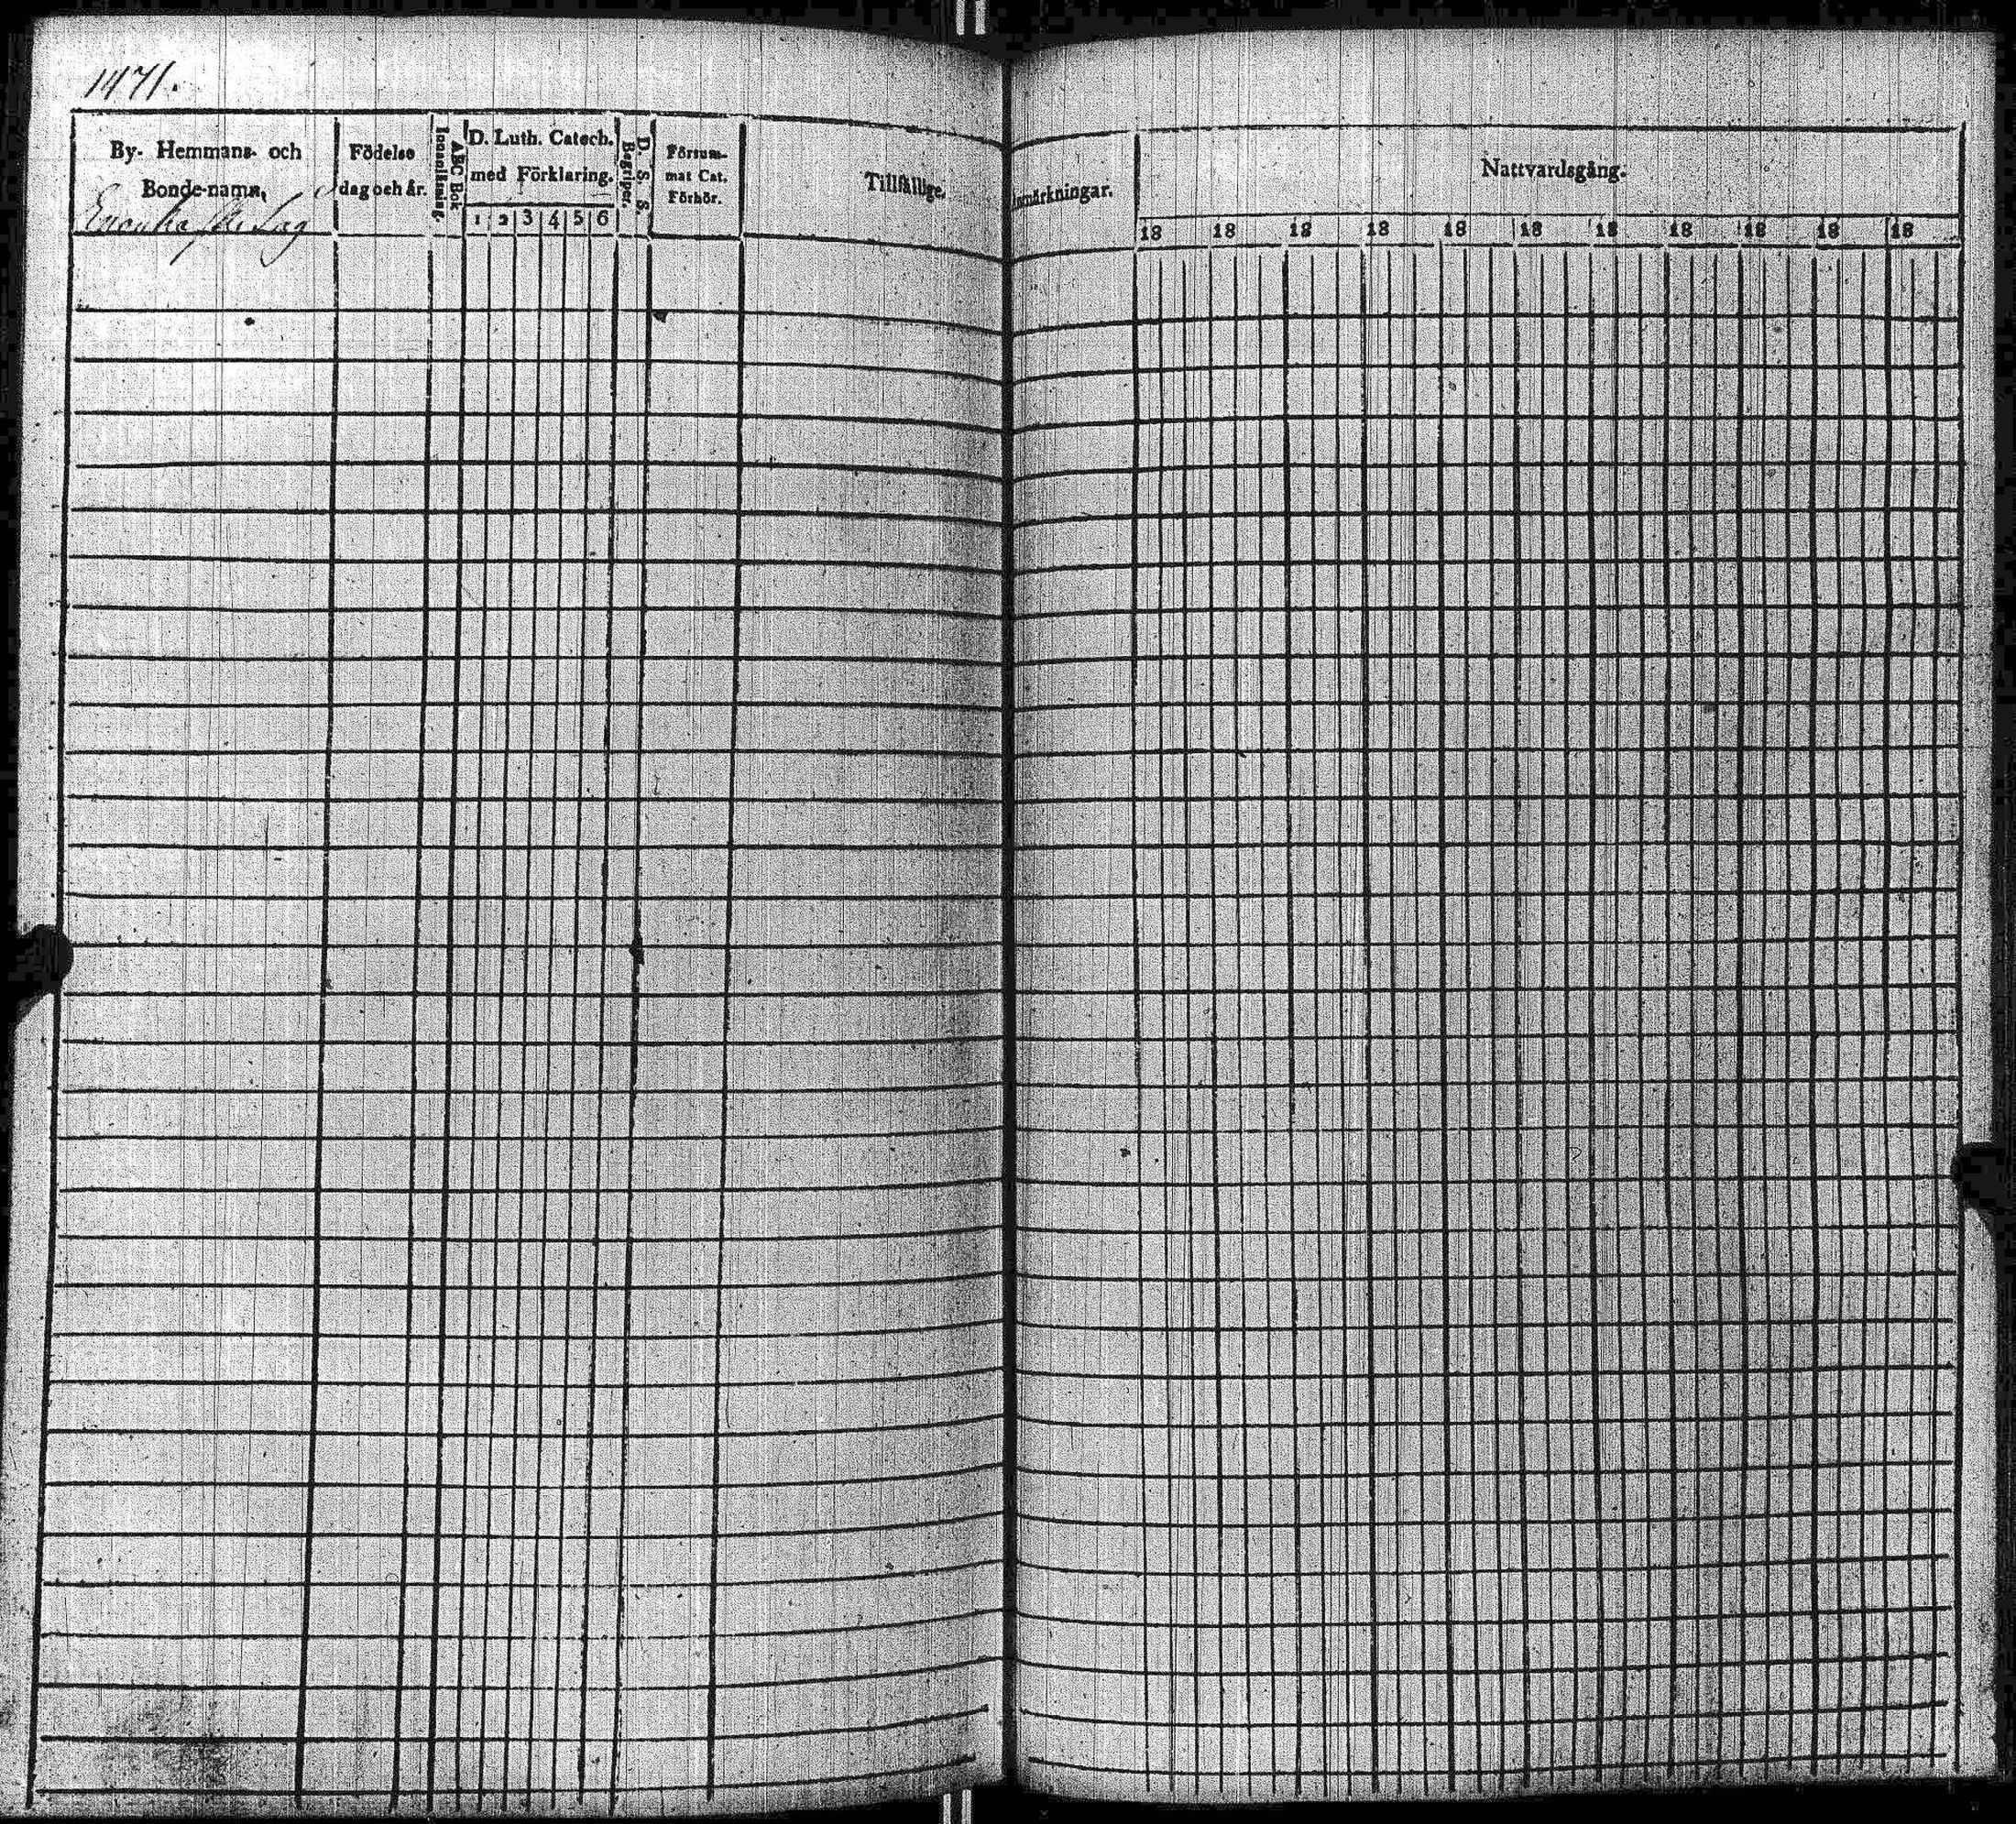 1471.
By- Hemmans- och
Bonde-namn,
Födelse
dag och år.
Innanläsning.
ABC Bok
D. Luth. Catech.
med Förklaring.
1 2 3 4 5 6
Begriper.
D. S. S.
Försum-
mat Cat.
Förhör.
Tillfällige.
Anmärkningar.
Nattvardsgång.
18 18 18 18 18 18 18 18 18 18 18